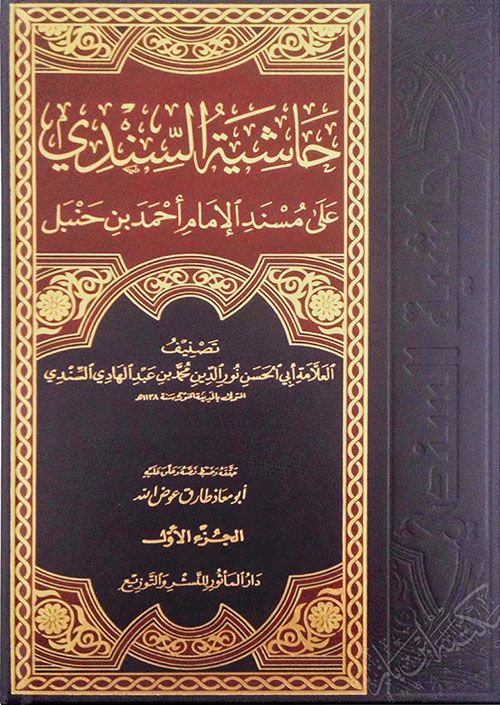 حَاشِيَةُ السِّنْدِيّ
عَلَى مُسْنَدِ الإِمَامِ أَحْمَدَ بنِ حَنْبَل
تَصْنِيْفُ
العَلَّامَةِ أَبِي الحَسَنِ نُورِ الدِّينِ مُحَمَّدِ بنِ عَبْدِ الهَادِي السِّنْدِيّ
المتوفى بالمدينة المنورة سنة ١١٣٨هـ
حَقَّقَهُ وَضَبَطَ نَصَّهُ وَعَلَّقَ عَلَيْهِ
أبو معاذ طارق عوض الله
الجُزْءُ الأَوَّلُ
دَارُ المَأْثُورِ لِلنَّشْرِ وَالتَّوْزِيْعِ
حاشية السندي
مكتبة ابن باز